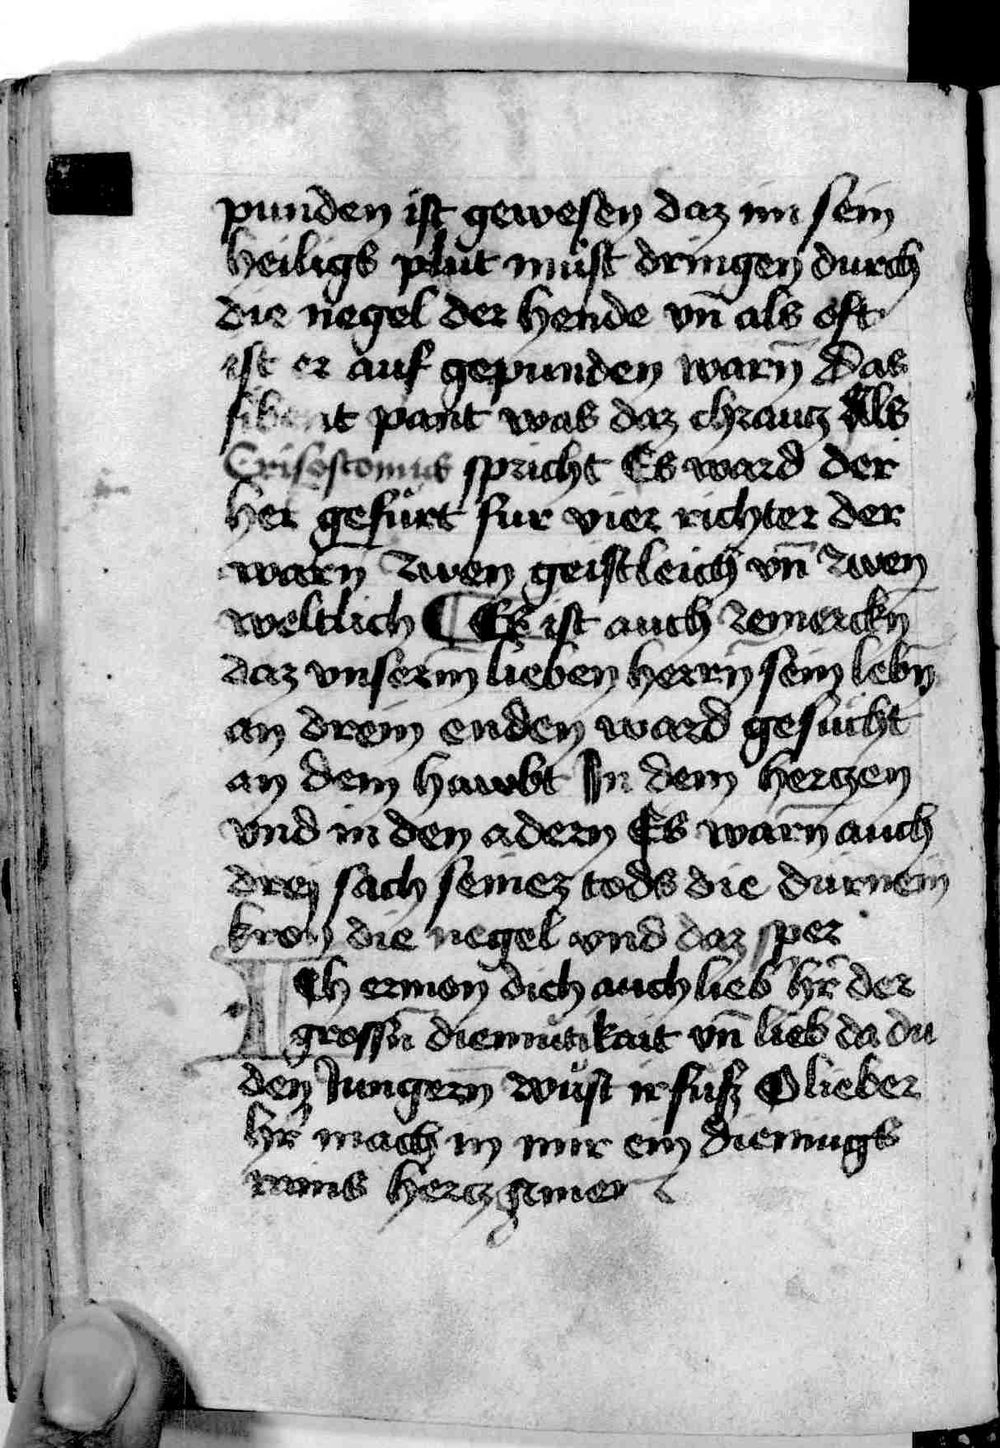 punden ist gewesen daz im sein
heiligs plut müst dringen durch
die negel der hende vn̄ als oft
ist er auf gepunden warn̄ Das
sibent pant was daz chrautz Als
Crisostomus spricht Es ward der
her gefürt fur vier richter der
warn̄ zwen geistleich vn̄ zwen
weltlich ¶ Es ist auch zemerckn̄
daz vnserm̄ lieben herrn̄ sein lebn̄
an drein enden ward gesucht
an dem hawbt In dem hertzen
vnd in den adern Es warn̄ auch
drey sach seinez tods die dürnein
kron die negel vnd daz sper
Ich ermon dich auch lieb' hr̄ der
grossn̄ diemütikait vn̄ lieb da du
den Jungern̄ wüst ir füsz O lieber
hr̄ mach in mir ein diemugs
rains hertz Amen